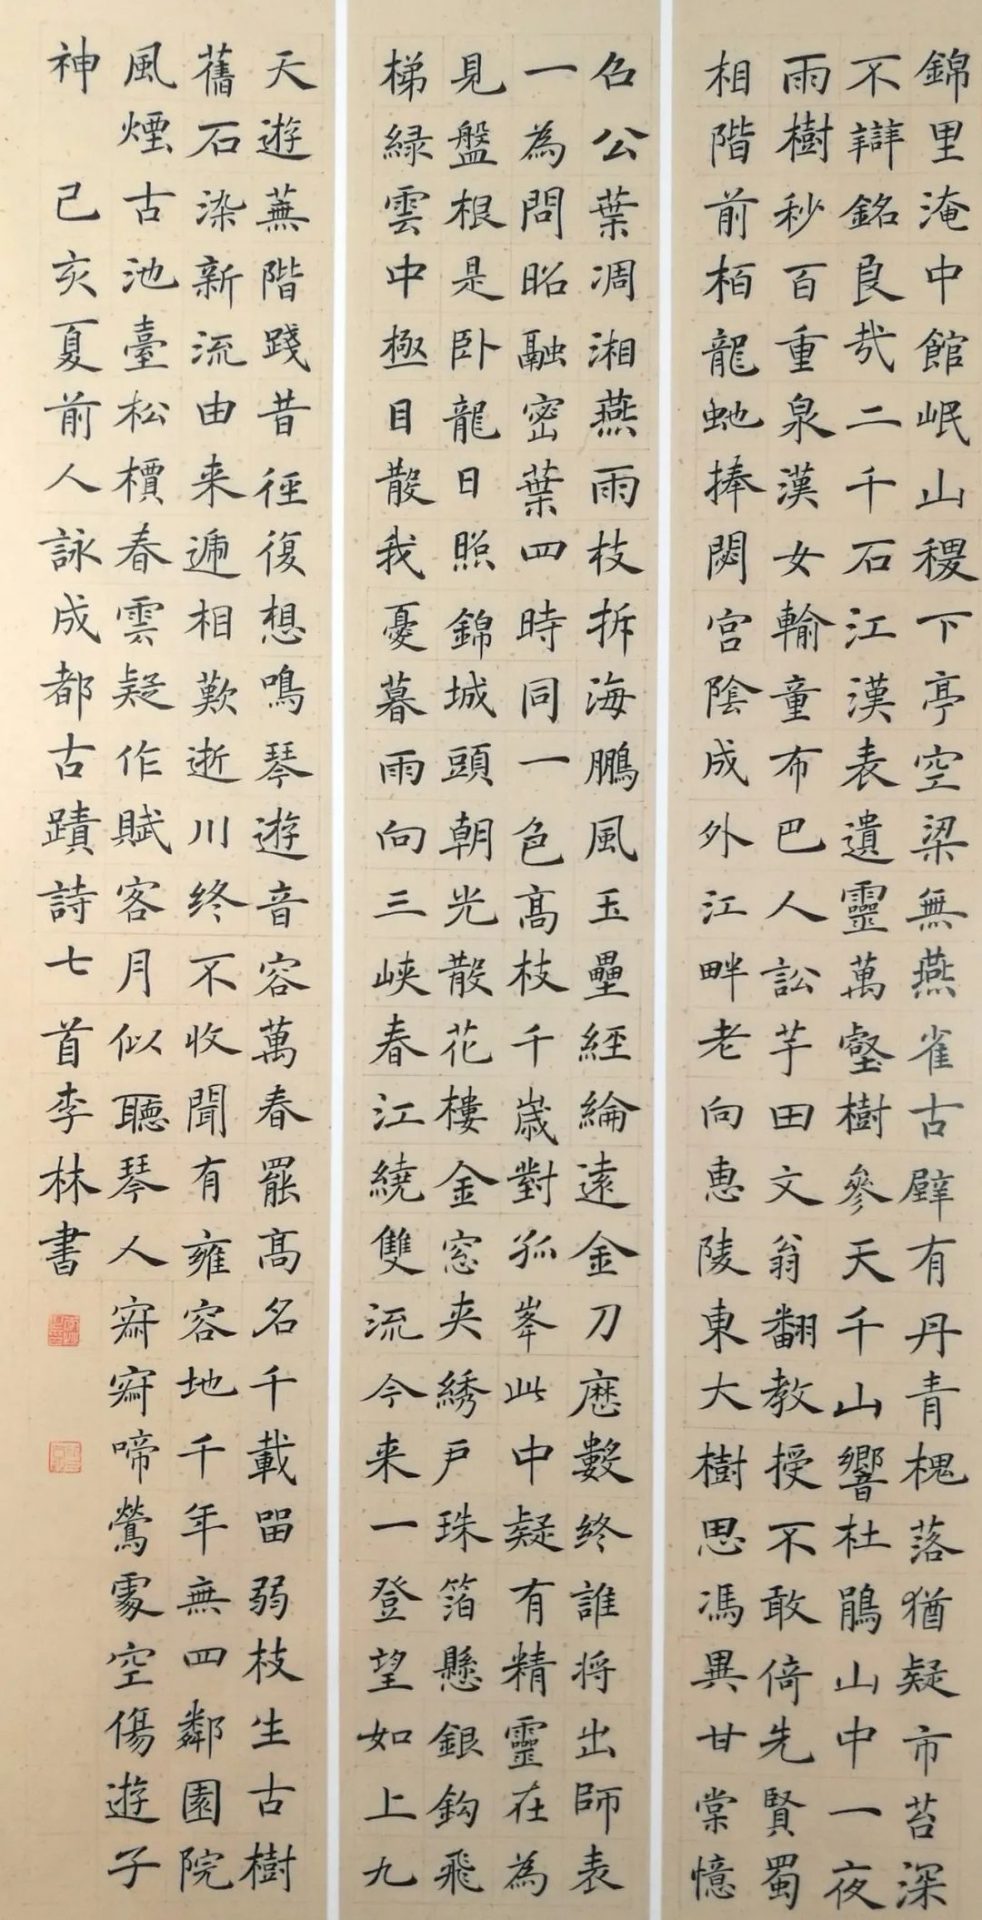 錦里淹中館岷山稷下亭空梁無燕雀古壁有丹青槐落猶疑市苔深
不辯銘良哉二千石江漢表遺靈萬壑樹參天千山響杜鵑山中一夜
雨樹秒百重泉漢女輸童布巴人訟芋田文翁翻教授不敢倚先賢蜀
相階前柏龍虵捧閟宮陰成外江畔老向惠陵東大樹思馮異甘棠憶
召公葉凋湘燕雨枝拆海鵬風玉壘經綸遠金刀歷數终誰将出師表
一為問昭融密葉四時同一色高枝千歲對孤峯此中疑有精靈在為
見盤根是卧龍日照錦城頭朝光散花樓金窓夹綉戶珠箔懸銀鈎飛
梯緑雲中極目散我憂暮雨向三峡春江繞雙流今来一登望如上九
天遊蕪階踐昔徑復想鳴琴遊音容萬春罷高名千載留弱枝生古樹
舊石染新流由来遞相歎逝川终不收聞有雍容地千年無四鄰園院
風煙古池臺松檟春雲疑作賦客月似聽琴人寂寂啼鶯處空傷遊子
神 己亥夏前人詠成都古蹟詩七首李林書